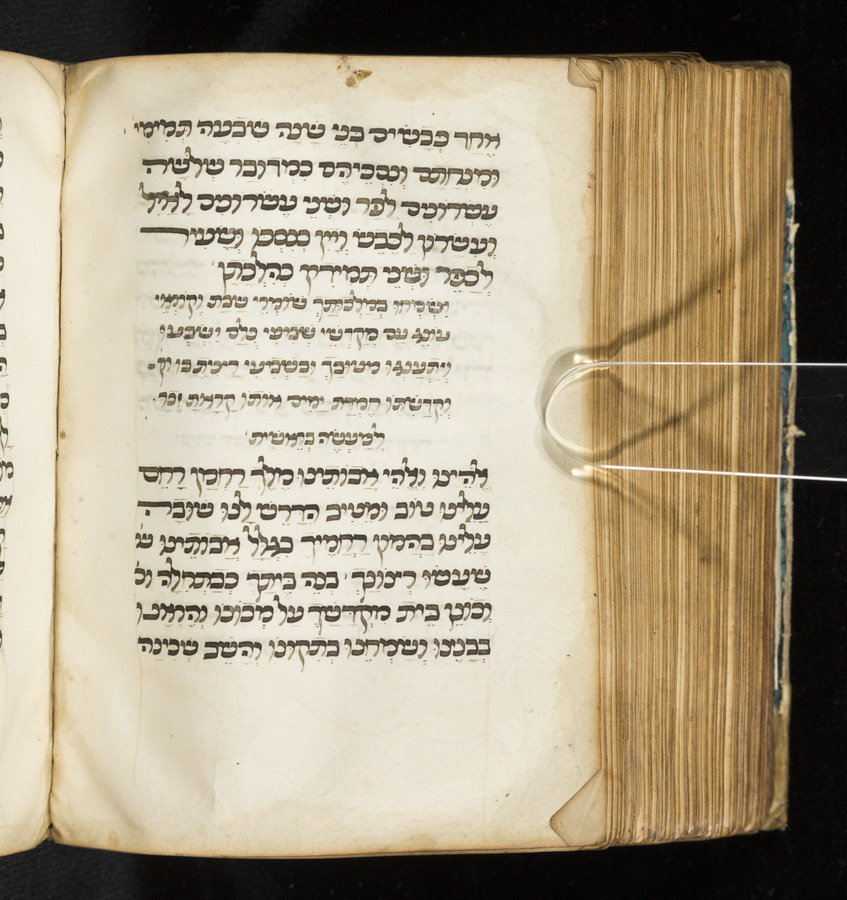 אחד כבשים בני שנה שבעה תמימי
ומנחתם ונסכיהם כמדובר שלשה
עשרונים לפר ושני עשרונים לאיל
ועשרון לכבש ויין כנסכו ושעיר
לכפר ושני תמידין כהלכתן
וישמחו במלכותך שומרי שבת וקוראי
עונג עם מקדשי שביעי כלם ישבעו
ויתענגו מטובך ובשביעי רצית בו וק
וקדשתו חמדת ימים אותו קראת זכר
למעשה בראשית
אלהינו ואלהי אבותינו מלך רחמן רחם
עלינו טוב ומטיב הדרש לנו שובה
עלינו בהמון רחמיך בגלל אבותינו ש
שעשו רצונך בנה ביתך כבתחלה וכ
וכונן בית מקדשך על מכונו והראנו
בבנינו ושמחנו בתקונו והשב שכינה